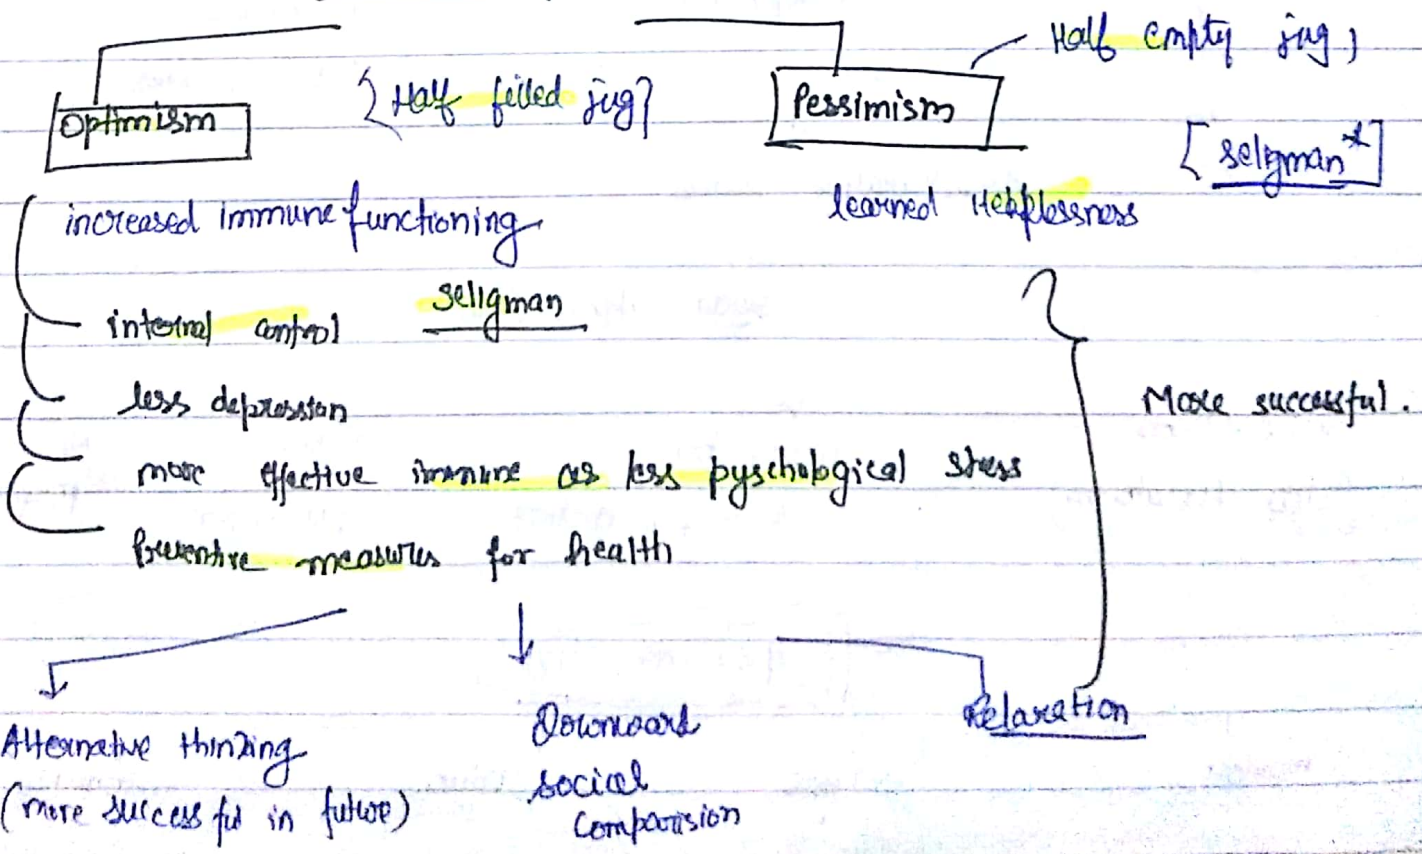 Half empty jug,
{Half filled jug}
Optimism
Pessimism
[Seligman*]
increased immune functioning
learned Helplessness
internal control
Seligman
less depression
More successful.
more effective immune as less pyschological stress
Preventive measures for health
Alternative thinking
(more successful in future)
Downward
social
comparision
Relaxation